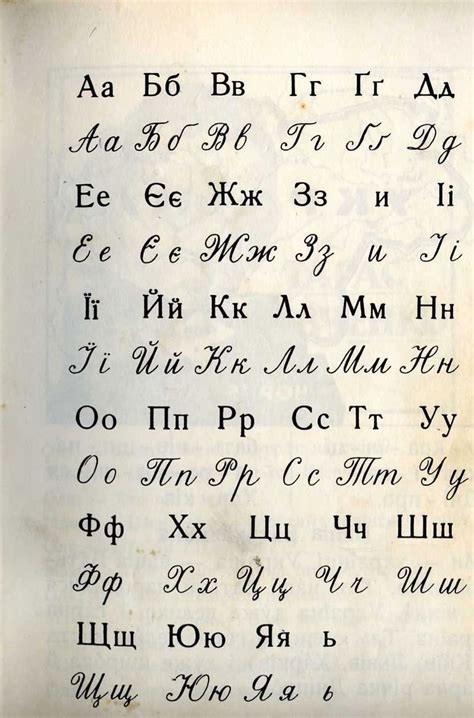 Аа Бб Вв Гг Ґґ Дд
Аа Бб Вв Гг Ґґ Дд
Ее Єє Жж Зз и Іі
Ее Єє Жж Зз и Іі
Її Йй Кк Лл Мм Нн
Її Йй Кк Лл Мм Нн
Оо Пп Рр Сс Тт Уу
Оо Пп Рр Сс Тт Уу
Фф Хх Цц Чч Шш
Фф Хх Цц Чч Шш
Щщ Юю Яя ь
Щщ Юю Яя ь